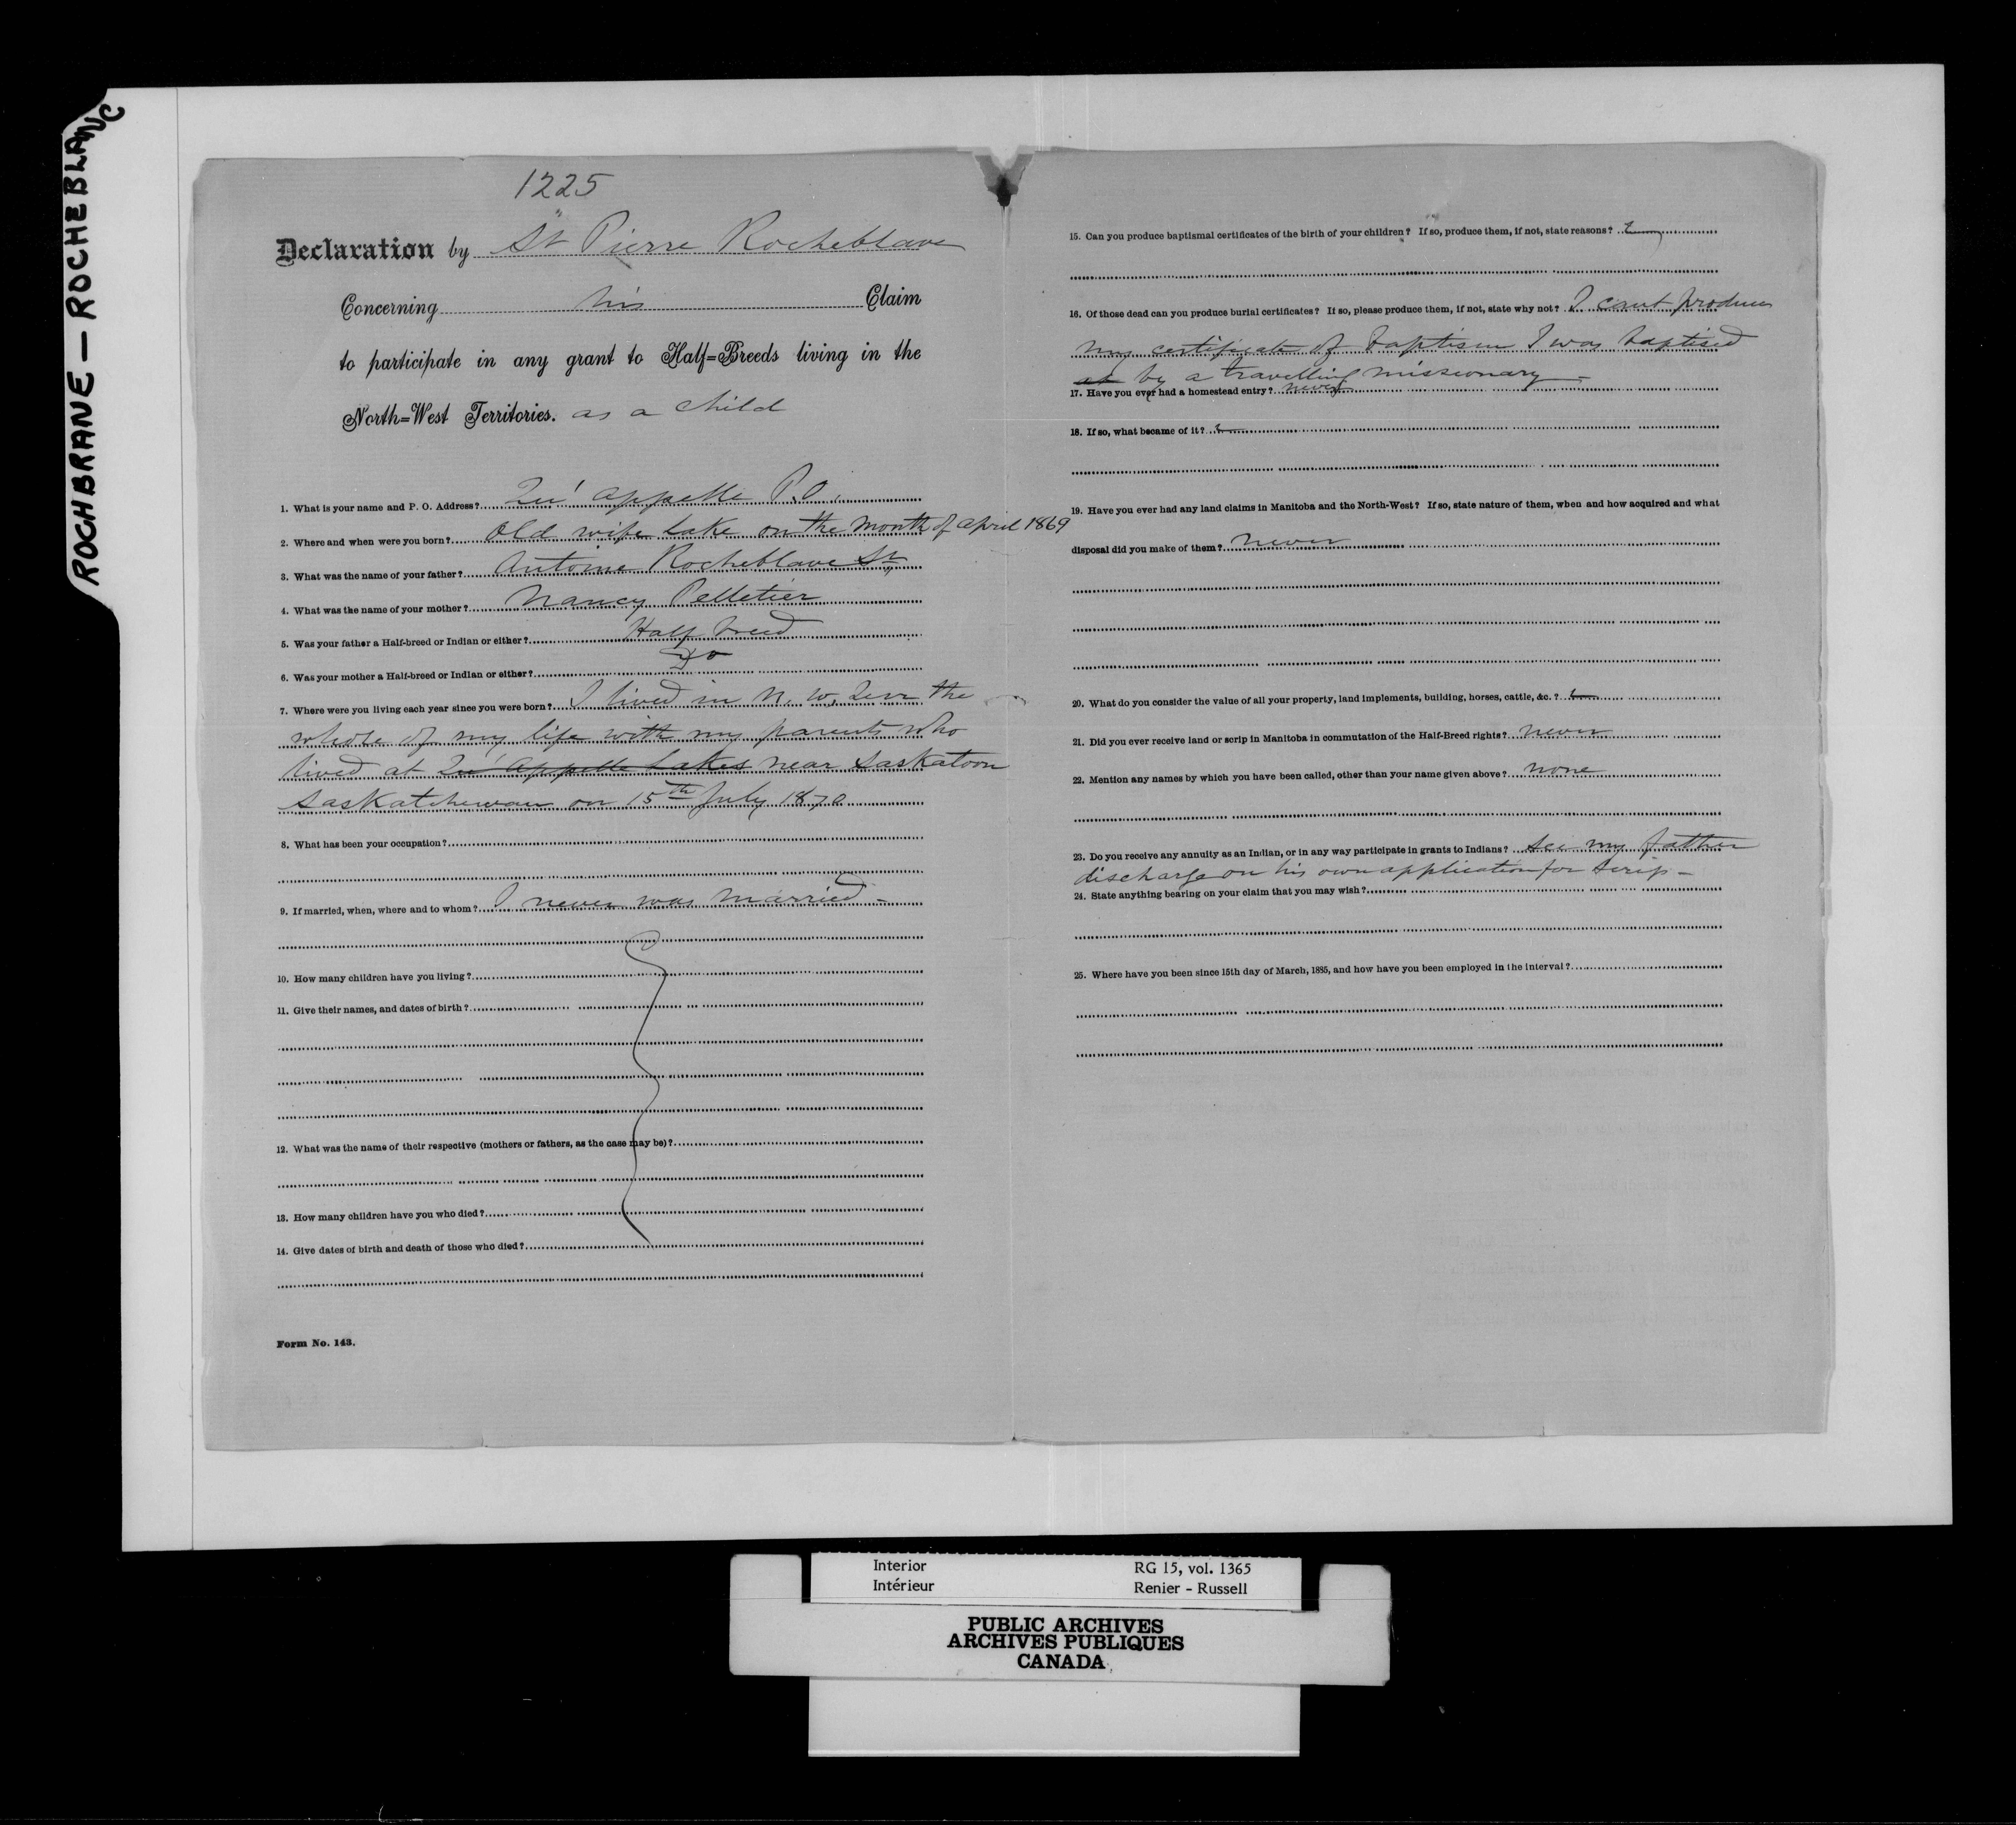 ROCHBRANE — ROCHEBLANC
1225
Declaration by St Pierre Rocheblave
Concerning his Claim
to participate in any grant to Half=Breeds living in the
North=West Territories. as a child
1. What is your name and P. O. Address? Qu'appelle P.O.
2. Where and when were you born? Old wife Lake on the month of april 1869
3. What was the name of your father? Antoine Rocheblave Sr
4. What was the name of your mother? Nancy Pelletier
5. Was your father a Half-breed or Indian or either? Half breed
6. Was your mother a Half-breed or Indian or either? Do
7. Where were you living each year since you were born? I lived in N. W. Terr the
whole of my life with my parents who
lived at Qu'Appelle Lakes near Saskatoon
Saskatchewan on 15th July 1870
8. What has been your occupation?
9. If married, when, where and to whom? I never was married -
10. How many children have you living?
11. Give their names, and dates of birth?
12. What was the name of their respective (mothers or fathers, as the case may be)?
13. How many children have you who died?
14. Give dates of birth and death of those who died?
Form No. 143.
15. Can you produce baptismal certificates of the birth of your children? If so, produce them, if not, state reasons?
16. Of those dead can you produce burial certificates? If so, please produce them, if not, state why not? I cant produce
my certificate of baptism I was baptised
at by a travelling missionary -
17. Have you ever had a homestead entry? never
18. If so, what became of it?
19. Have you ever had any land claims in Manitoba and the North-West? If so, state nature of them, when and how acquired and what
disposal did you make of them? never
20. What do you consider the value of all your property, land implements, building, horses, cattle, &c.?
21. Did you ever receive land or scrip in Manitoba in commutation of the Half-Breed rights? never
22. Mention any names by which you have been called, other than your name given above? none
23. Do you receive any annuity as an Indian, or in any way participate in grants to Indians? See my father
discharge on his own application for scrip -
24. State anything bearing on your claim that you may wish?
25. Where have you been since 15th day of March, 1885, and how have you been employed in the interval?
Interior RG 15, vol. 1365
Intérieur Renier - Russell
PUBLIC ARCHIVES
ARCHIVES PUBLIQUES
CANADA